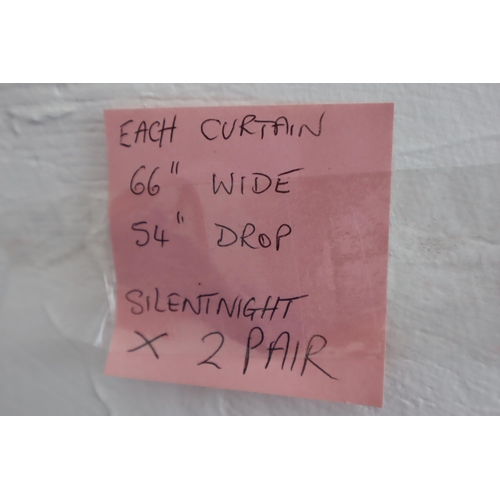 EACH CURTAIN
66" WIDE
54" DROP
SILENTNIGHT
X 2 PAIR